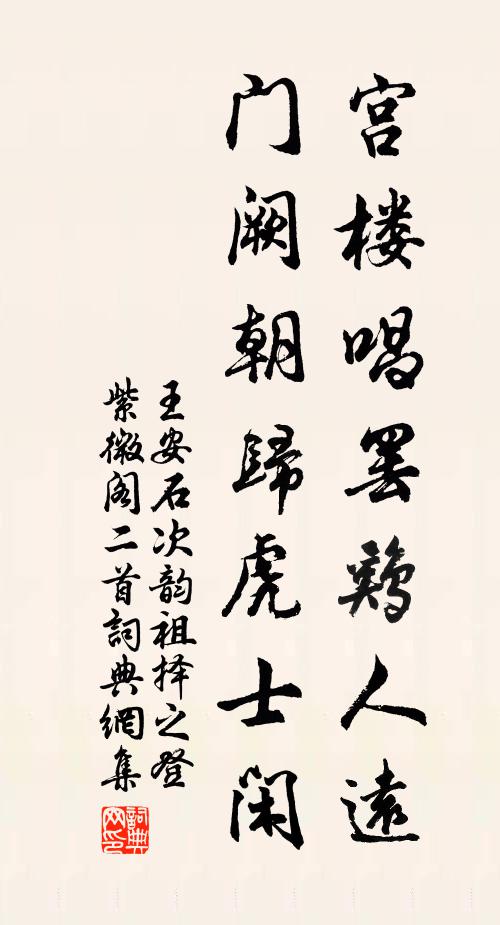 宫楼唱罢鷄人遠
门阙朝歸虎士闲
王安石次韵祖择之登
紫微阁二首詞典網集
詞典
网印